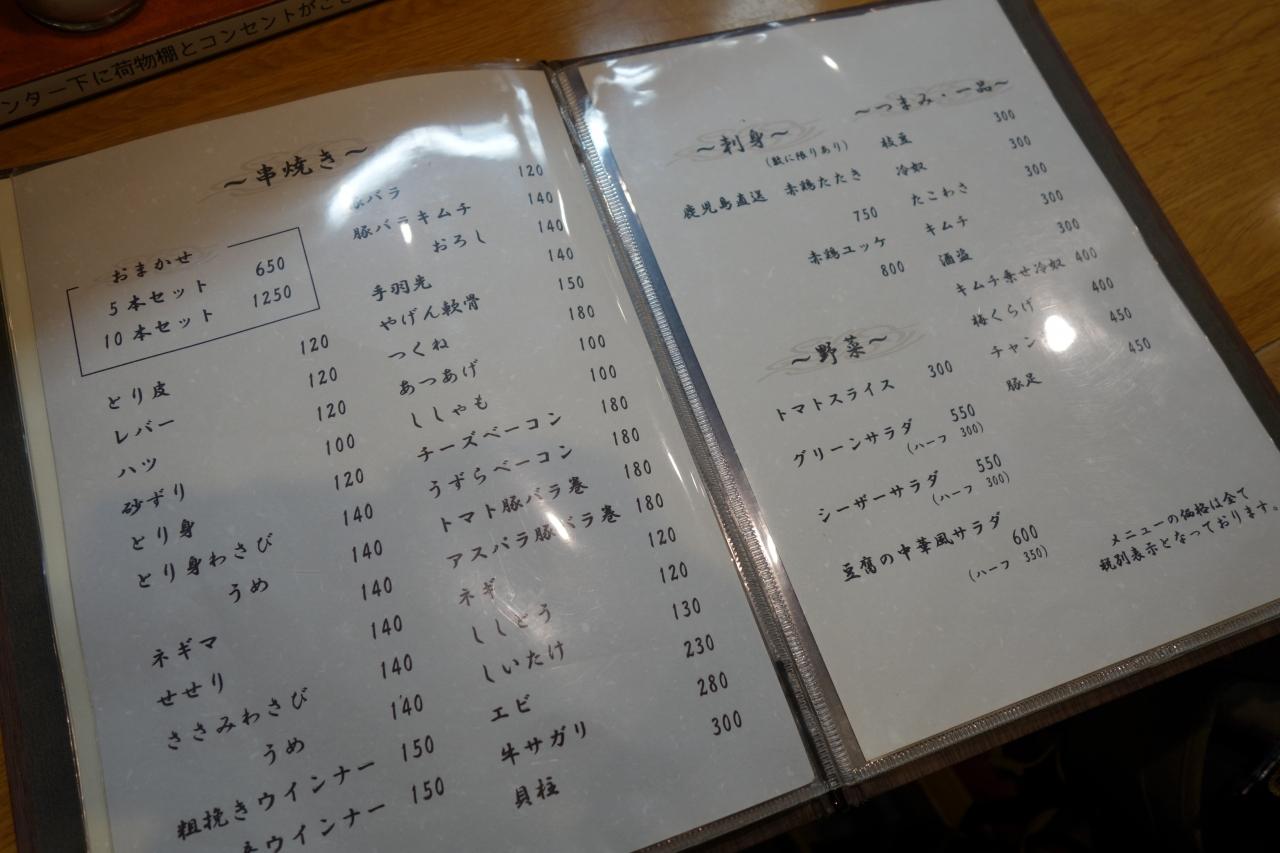 ンター下に荷物棚とコンセントがござ
～串焼き～
おまかせ
5本セット 650
10本セット 1250
とり皮 120
レバー 120
ハツ 120
砂ずり 100
とり身 120
とり身わさび 140
うめ 140
ネギマ 140
せせり 140
ささみわさび 140
うめ 140
粗挽きウインナー 150
ウインナー 150
豚バラ 120
豚バラキムチ 140
おろし 140
手羽先 140
やげん軟骨 150
つくね 180
あつあげ 100
ししゃも 100
チーズベーコン 180
うずらベーコン 180
トマト豚バラ巻 180
アスパラ豚バラ巻 180
ネギ 120
ししとう 120
しいたけ 130
エビ 230
牛サガリ 280
貝柱 300
～刺身～
(数に限りあり)
鹿児島直送 赤鶏たたき
750
赤鶏ユッケ
800
～野菜～
トマトスライス 300
グリーンサラダ 550
(ハーフ 300)
シーザーサラダ 550
(ハーフ 300)
豆腐の中華風サラダ 600
(ハーフ 350)
～つまみ・一品～
枝豆 300
冷奴 300
たこわさ 300
キムチ 300
酒盗 300
キムチ乗せ冷奴 400
梅くらげ 400
チャン 450
豚足 450
メニューの価格は全て
税別表示となっております。